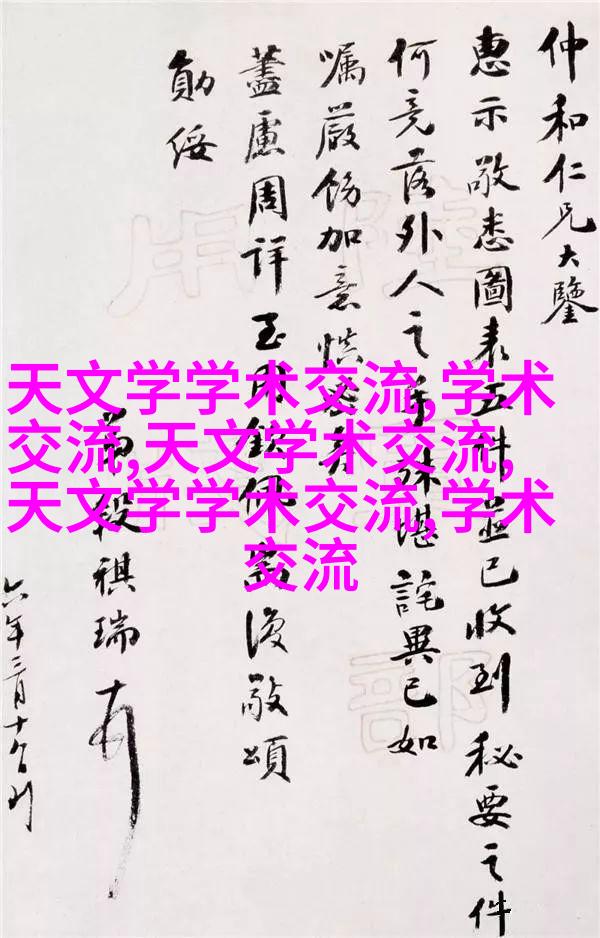 仲和仁兄大鑒
惠示敬悉圖表五件並已收到秘要之件
何竟落外人之手殊堪詫異已如
囑嚴飭加意慎
蓋慮周詳至
復敬頌
勛綏
弟段祺瑞
六年三月十
天文学学术交流,学术
交流,天文学术交流,
天文学学术交流,学术
交流
陸
部